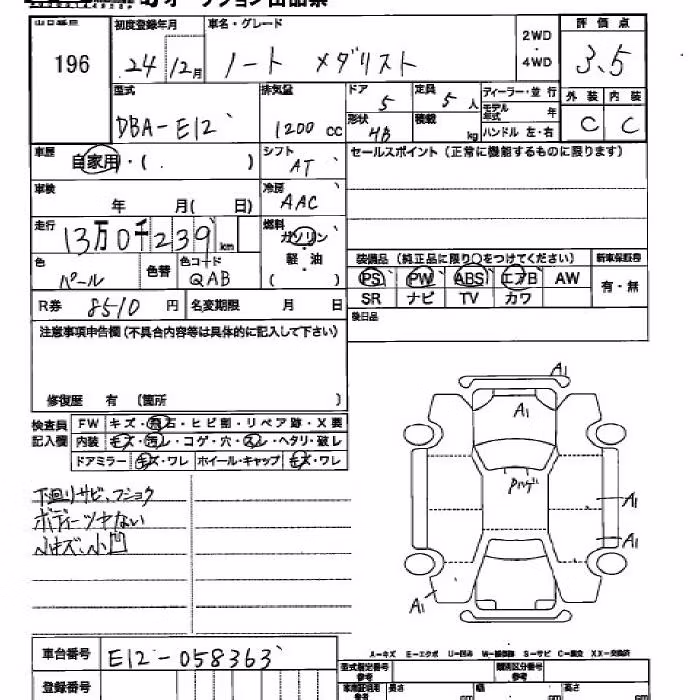 オークション出品票
出品番号 初度登録年月 車名・グレード 2WD ・ 4WD 評価点
196 24年12月 ノート メダリスト 3.5
型式 排気量 ドア 定員 ディーラー・並行 外装 内装
DBA-E12 1200 cc 5 5人 モデル年式 年 C C
形状 積載 ハンドル 左・右
4B kg
車歴 シフト セールスポイント(正常に機能するものに限ります)
自家用・( ) AT
車検 冷房
年 月( 日) AAC
走行 燃料
13万0千239km ガソリン・軽油( )
色 色替 色コード 装備品(純正品に限り○をつけてください) 新車保証書
パール QAB PS PW ABS エアB AW 有・無
R券 8510円 名変期限 月 日 SR ナビ TV カワ
注意事項申告欄(不具合内容等は具体的に記入して下さい) 後日品
修復歴 有 (箇所 )
検査員記入欄 FW キズ・飛石・ヒビ割・リペア跡・X要
内装 キズ・汚レ・コゲ・穴・スレ・ヘタリ・破レ
ドアミラー キズ・ワレ ホイール・キャップ キズ・ワレ
下廻リサビ、フショク
ボディーツヤない
小キズ、小凹
A1
A1
Pハゲ
A1
A1
A1
A-キズ E-エクボ U-凹み W-補修跡 S-サビ C-腐食 XX-交換済
車台番号 E12-058363
登録番号
型式指定番号 参考 類別区分番号 参考
車庫証明用 参考 長さ cm 幅 cm 高さ cm